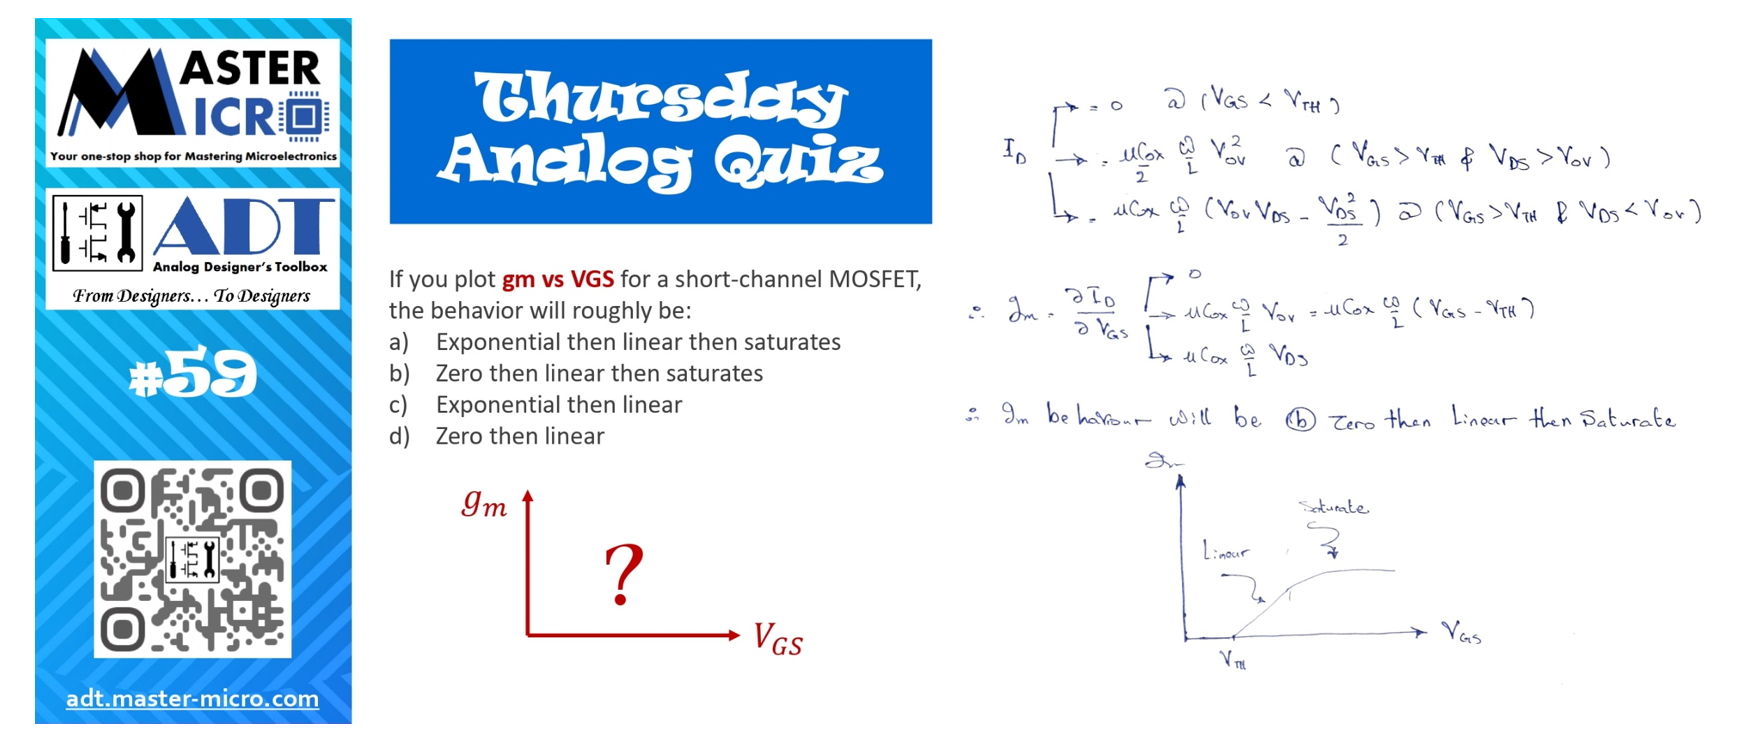 MASTER
MICRO
Your one-stop shop for Mastering Microelectronics
ADT
Analog Designer's Toolbox
From Designers... To Designers
#59
adt.master-micro.com
Thursday
Analog Quiz
If you plot gm vs VGS for a short-channel MOSFET,
the behavior will roughly be:
a) Exponential then linear then saturates
b) Zero then linear then saturates
c) Exponential then linear
d) Zero then linear
gm
?
VGS
= 0 @ (VGS < VTH)
ID = μCox/2 W/L Vov² @ (VGS > VTH & VDS > Vov)
= μCox W/L (Vov VDS - VDS²/2) @ (VGS > VTH & VDS < Vov)
0
∴ gm = ∂ID/∂VGS μCox W/L Vov = μCox W/L (VGS - VTH)
μCox W/L VDS
∴ gm behaviour will be (b) Zero then Linear then Saturate
gm
Saturate
Linear
VGS
VTH